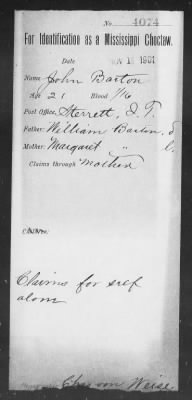 No. 4074
For Identification as a Mississippi Choctaw.
Date NOV 18 1901
Name John Barton
Age 21 Blood 1/16
Post Office, Sterrett, I. T.
Father: William Barton, d
Mother: Margaret "
Claims through Mother
Children:
Claims for self
alone
Chas von Weise